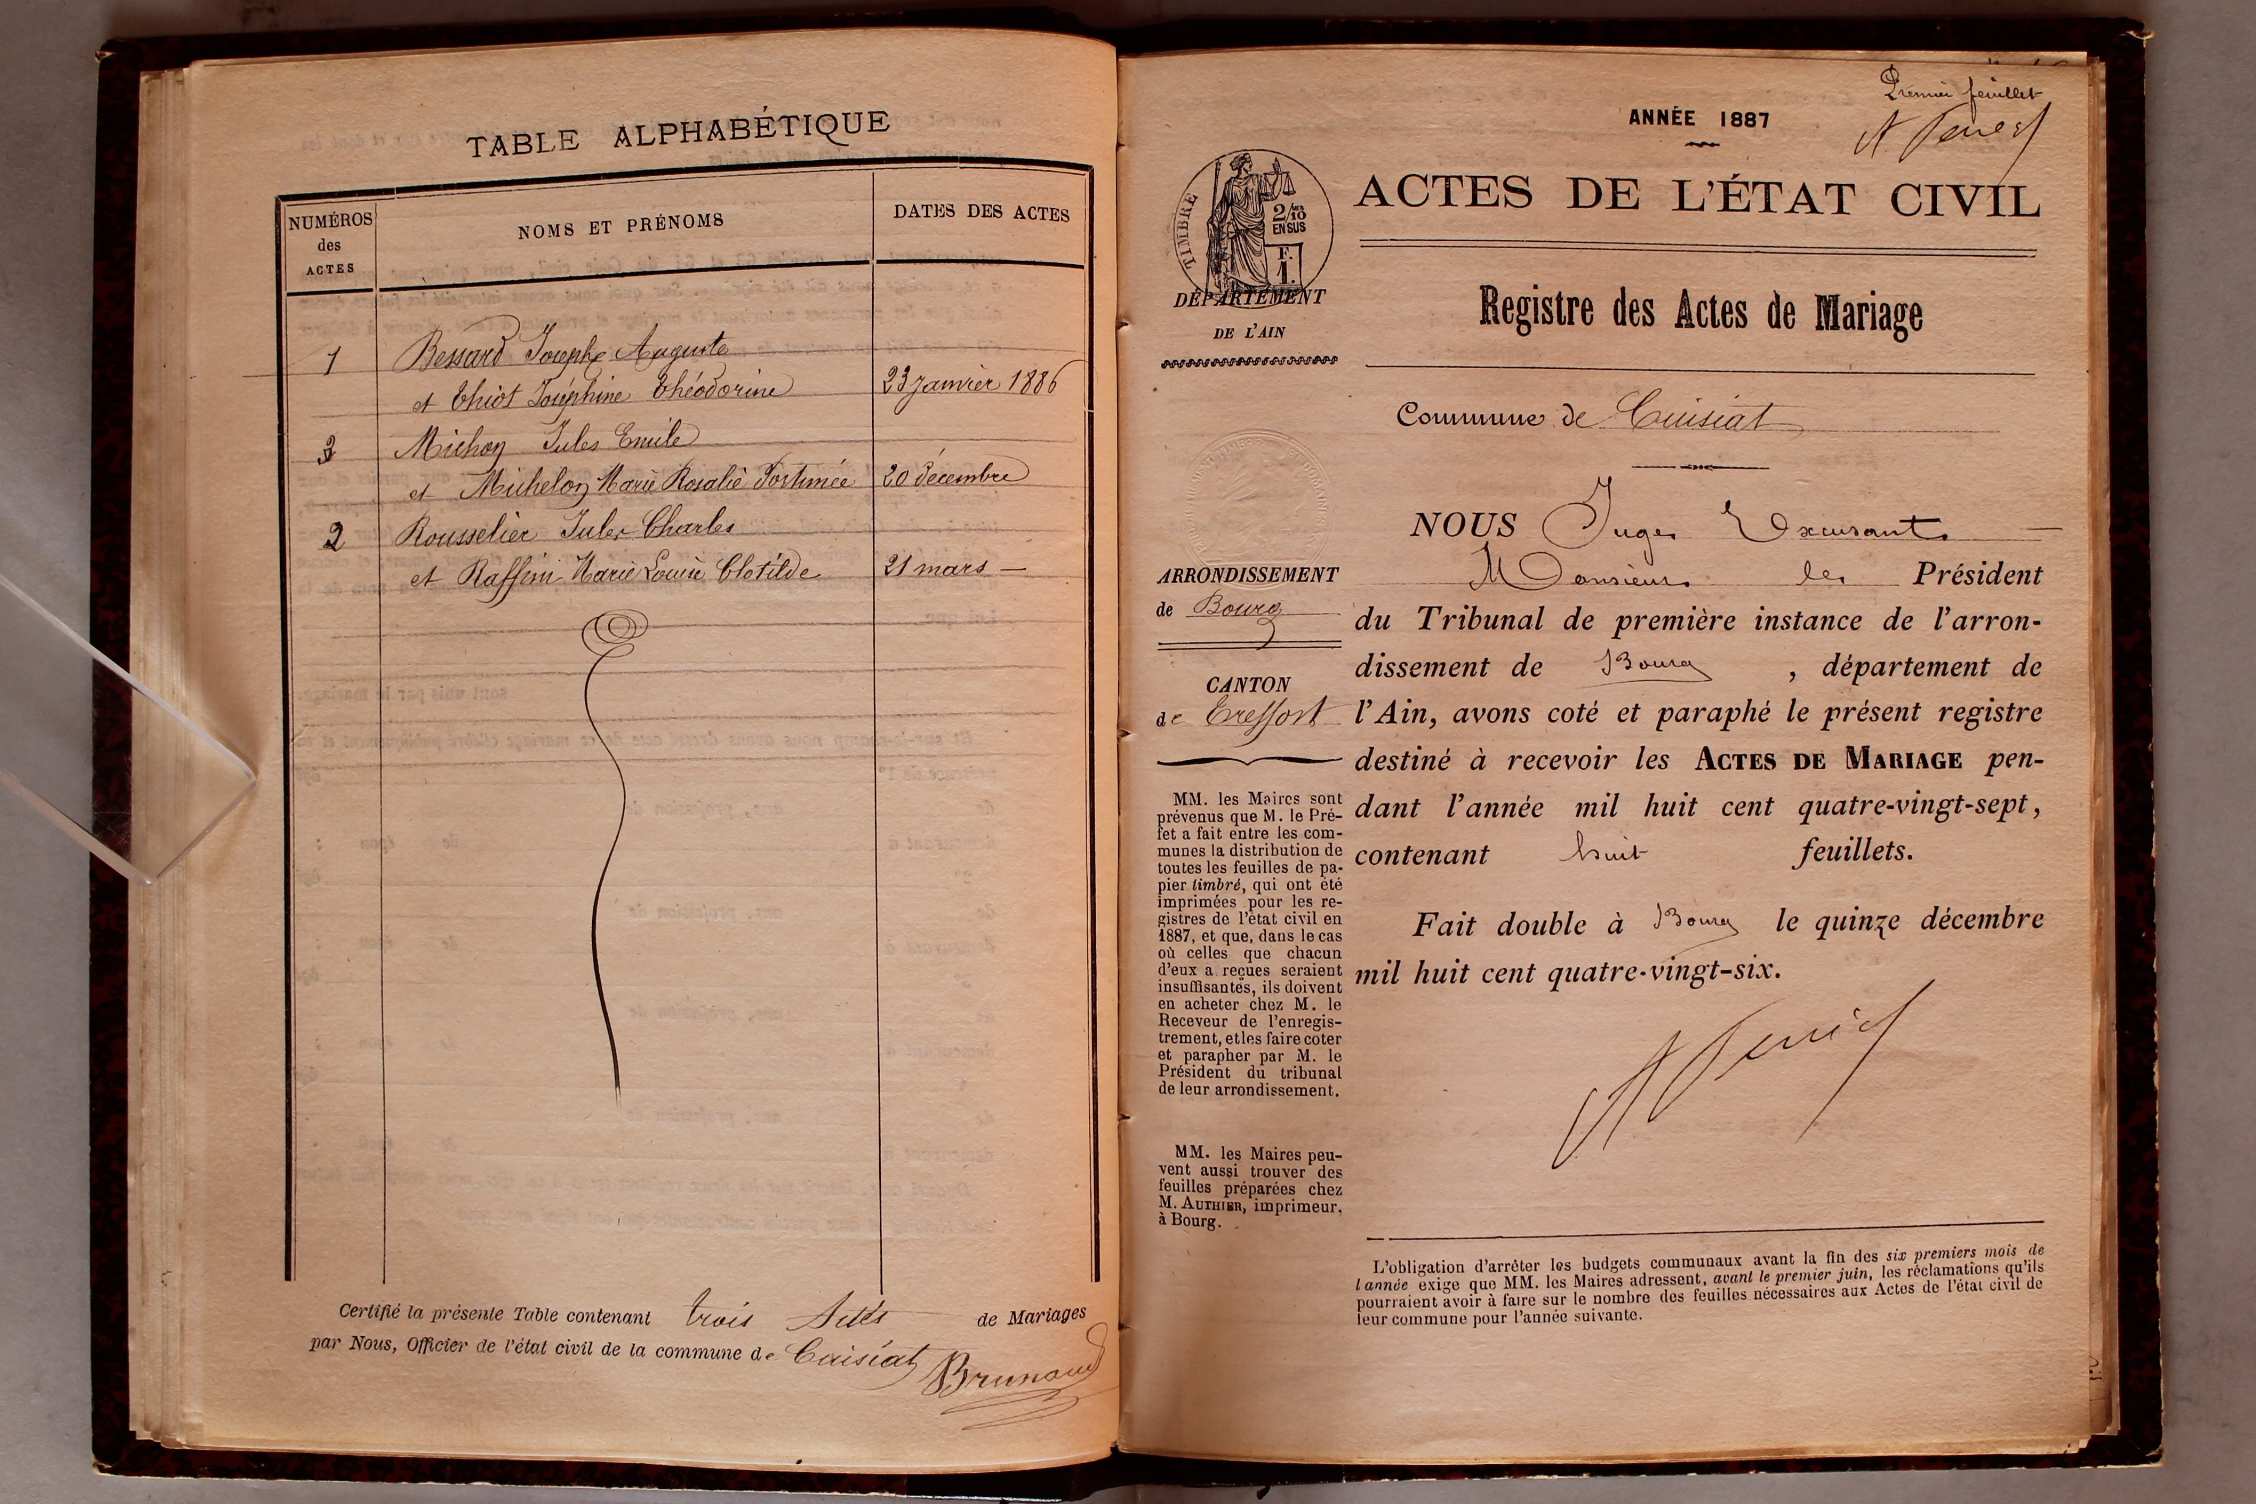 TABLE ALPHABÉTIQUE
NUMÉROS
des
ACTES
NOMS ET PRÉNOMS
DATES DES ACTES
1 Bessard Joseph Auguste
et Thiot Joséphine Théodorine 23 janvier 1886
3 Michon Jules Emile
et Michelon Marie Rosalie Fortunée 20 décembre
2 Rousselier Jules Charles
et Raffin Marie Louise Clotilde 21 mars —
Certifié la présente Table contenant trois Actes de Mariages
par Nous, Officier de l'état civil de la commune de Cuisiat
Brunand
Premier feuillet
ANNÉE 1887
TIMBRE
2/10
EN SUS
F.
1.
DÉPARTEMENT
DE L'AIN
ACTES DE L'ÉTAT CIVIL
Registre des Actes de Mariage
Commune de Cuisiat
ARRONDISSEMENT
de Bourg
CANTON
de Treffort
MM. les Maires sont
prévenus que M. le Pré-
fet a fait entre les com-
munes la distribution de
toutes les feuilles de pa-
pier timbré, qui ont été
imprimées pour les re-
gistres de l'état civil en
1887, et que, dans le cas
où celles que chacun
d'eux a reçues seraient
insuffisantes, ils doivent
en acheter chez M. le
Receveur de l'enregis-
trement, et les faire coter
et parapher par M. le
Président du tribunal
de leur arrondissement.
MM. les Maires peu-
vent aussi trouver des
feuilles préparées chez
M. AUTHIER, imprimeur,
à Bourg.
NOUS Juge Excusant
Monsieur le Président
du Tribunal de première instance de l'arron-
dissement de Bourg , département de
l'Ain, avons coté et paraphé le présent registre
destiné à recevoir les ACTES DE MARIAGE pen-
dant l'année mil huit cent quatre-vingt-sept,
contenant huit feuillets.
Fait double à Bourg le quinze décembre
mil huit cent quatre-vingt-six.
L'obligation d'arrêter les budgets communaux avant la fin des six premiers mois de
l'année exige que MM. les Maires adressent, avant le premier juin, les réclamations qu'ils
pourraient avoir à faire sur le nombre des feuilles nécessaires aux Actes de l'état civil de
leur commune pour l'année suivante.